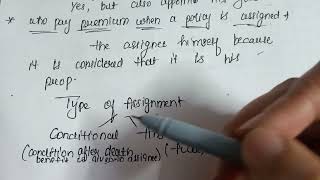 Yes, but also appoint his
* who pay premium when a policy is assigned →
the assignee himself because
it is considered that it is his
prop.
Type of Assignment
Conditional
(condition after death
benefit is given to assignee)